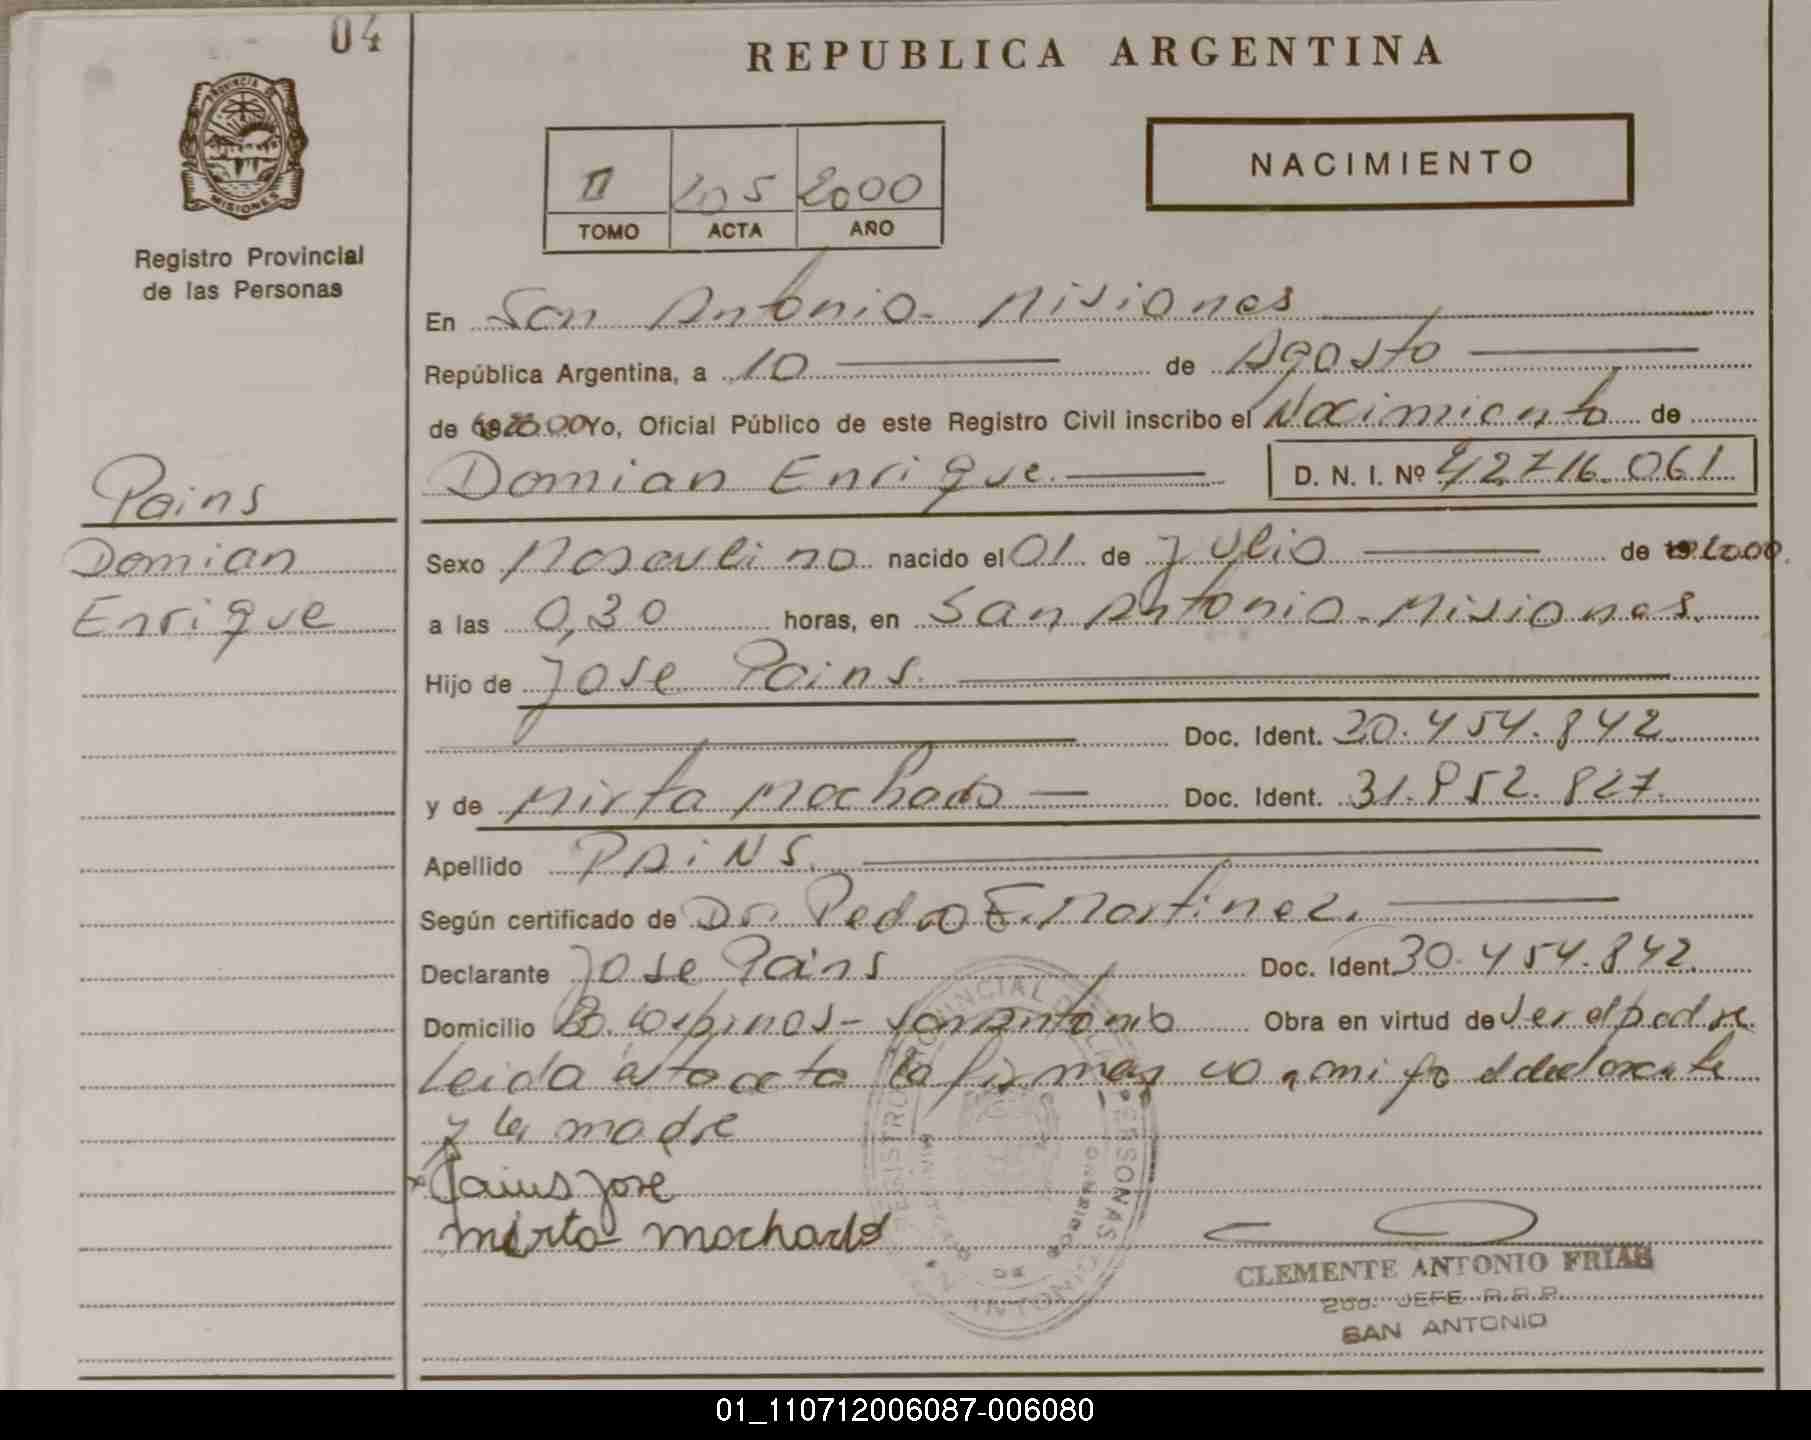 04
PROVINCIA DE
MISIONES
Registro Provincial
de las Personas
Pains
Damian
Enrique
REPUBLICA ARGENTINA
NACIMIENTO
II 205 2000
TOMO ACTA AÑO
En San Antonio - Misiones
República Argentina, a 10 de Agosto
de 2000 Yo, Oficial Público de este Registro Civil inscribo el Nacimiento de
Damian Enrique. D. N. I. Nº 42.716.061
Sexo Masculino nacido el 01 de Julio de 2000.
a las 0,30 horas, en San Antonio - Misiones.
Hijo de Jose Pains.
Doc. Ident. 30.454.842
y de Mirta Machado Doc. Ident. 31.952.827.
Apellido PAiNS.
Según certificado de Dr. Pedro E. Martinez.
Declarante Jose Pains Doc. Ident. 30.454.842
Domicilio San Antonio Obra en virtud de ser el padre
Leida esta acta la firman conmigo el declarante
y la madre
Pains José
mirta machado
REGISTRO PROVINCIAL DE LAS PERSONAS
CLEMENTE ANTONIO FRIAS
2do. JEFE R.R.P.
SAN ANTONIO
01_110712006087-006080